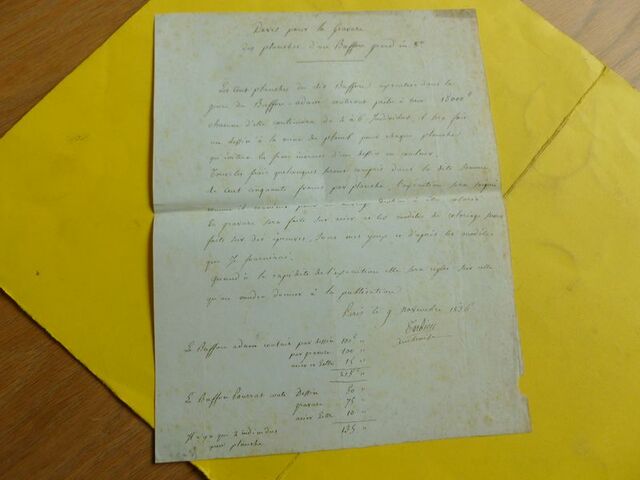 Devis pour la Gravure
des planches d'un Buffon grand in 8°
Les Cent planches du dit Buffon, exécutées dans le
genre du Buffon-adam couteront
chacune d'elle contiendra de 4 à 6 Individus, il sera fait
un dessin à la mine de plomb pour chaque planche
qui évitera la forme d'un dessin en couleur.
Tous les frais quelconques seront compris dans la dite somme
de Cent cinquante francs par planche. l'exécution sera soignée
comme il convient pour un ouvrage destiné à être colorié
la gravure sera faite sur acier et les modèles de coloriage seront
faits sur des épreuves, sous mes yeux et d'après les modèles
que Je fournirai.
Quand à la rapidité de l'exécution elle sera réglée sur celle
qu'on voudra donner à la publication
Paris le 9 novembre 1836
Le Buffon adam coutait par dessin 100 f
par gravure 100 "
acier et lettre 15 "
215 f "
Le Buffon Pourrat coute Dessin 50 "
gravure 75 "
acier lettre 10 "
135 "
Il n'y a que 2 individus
par planche